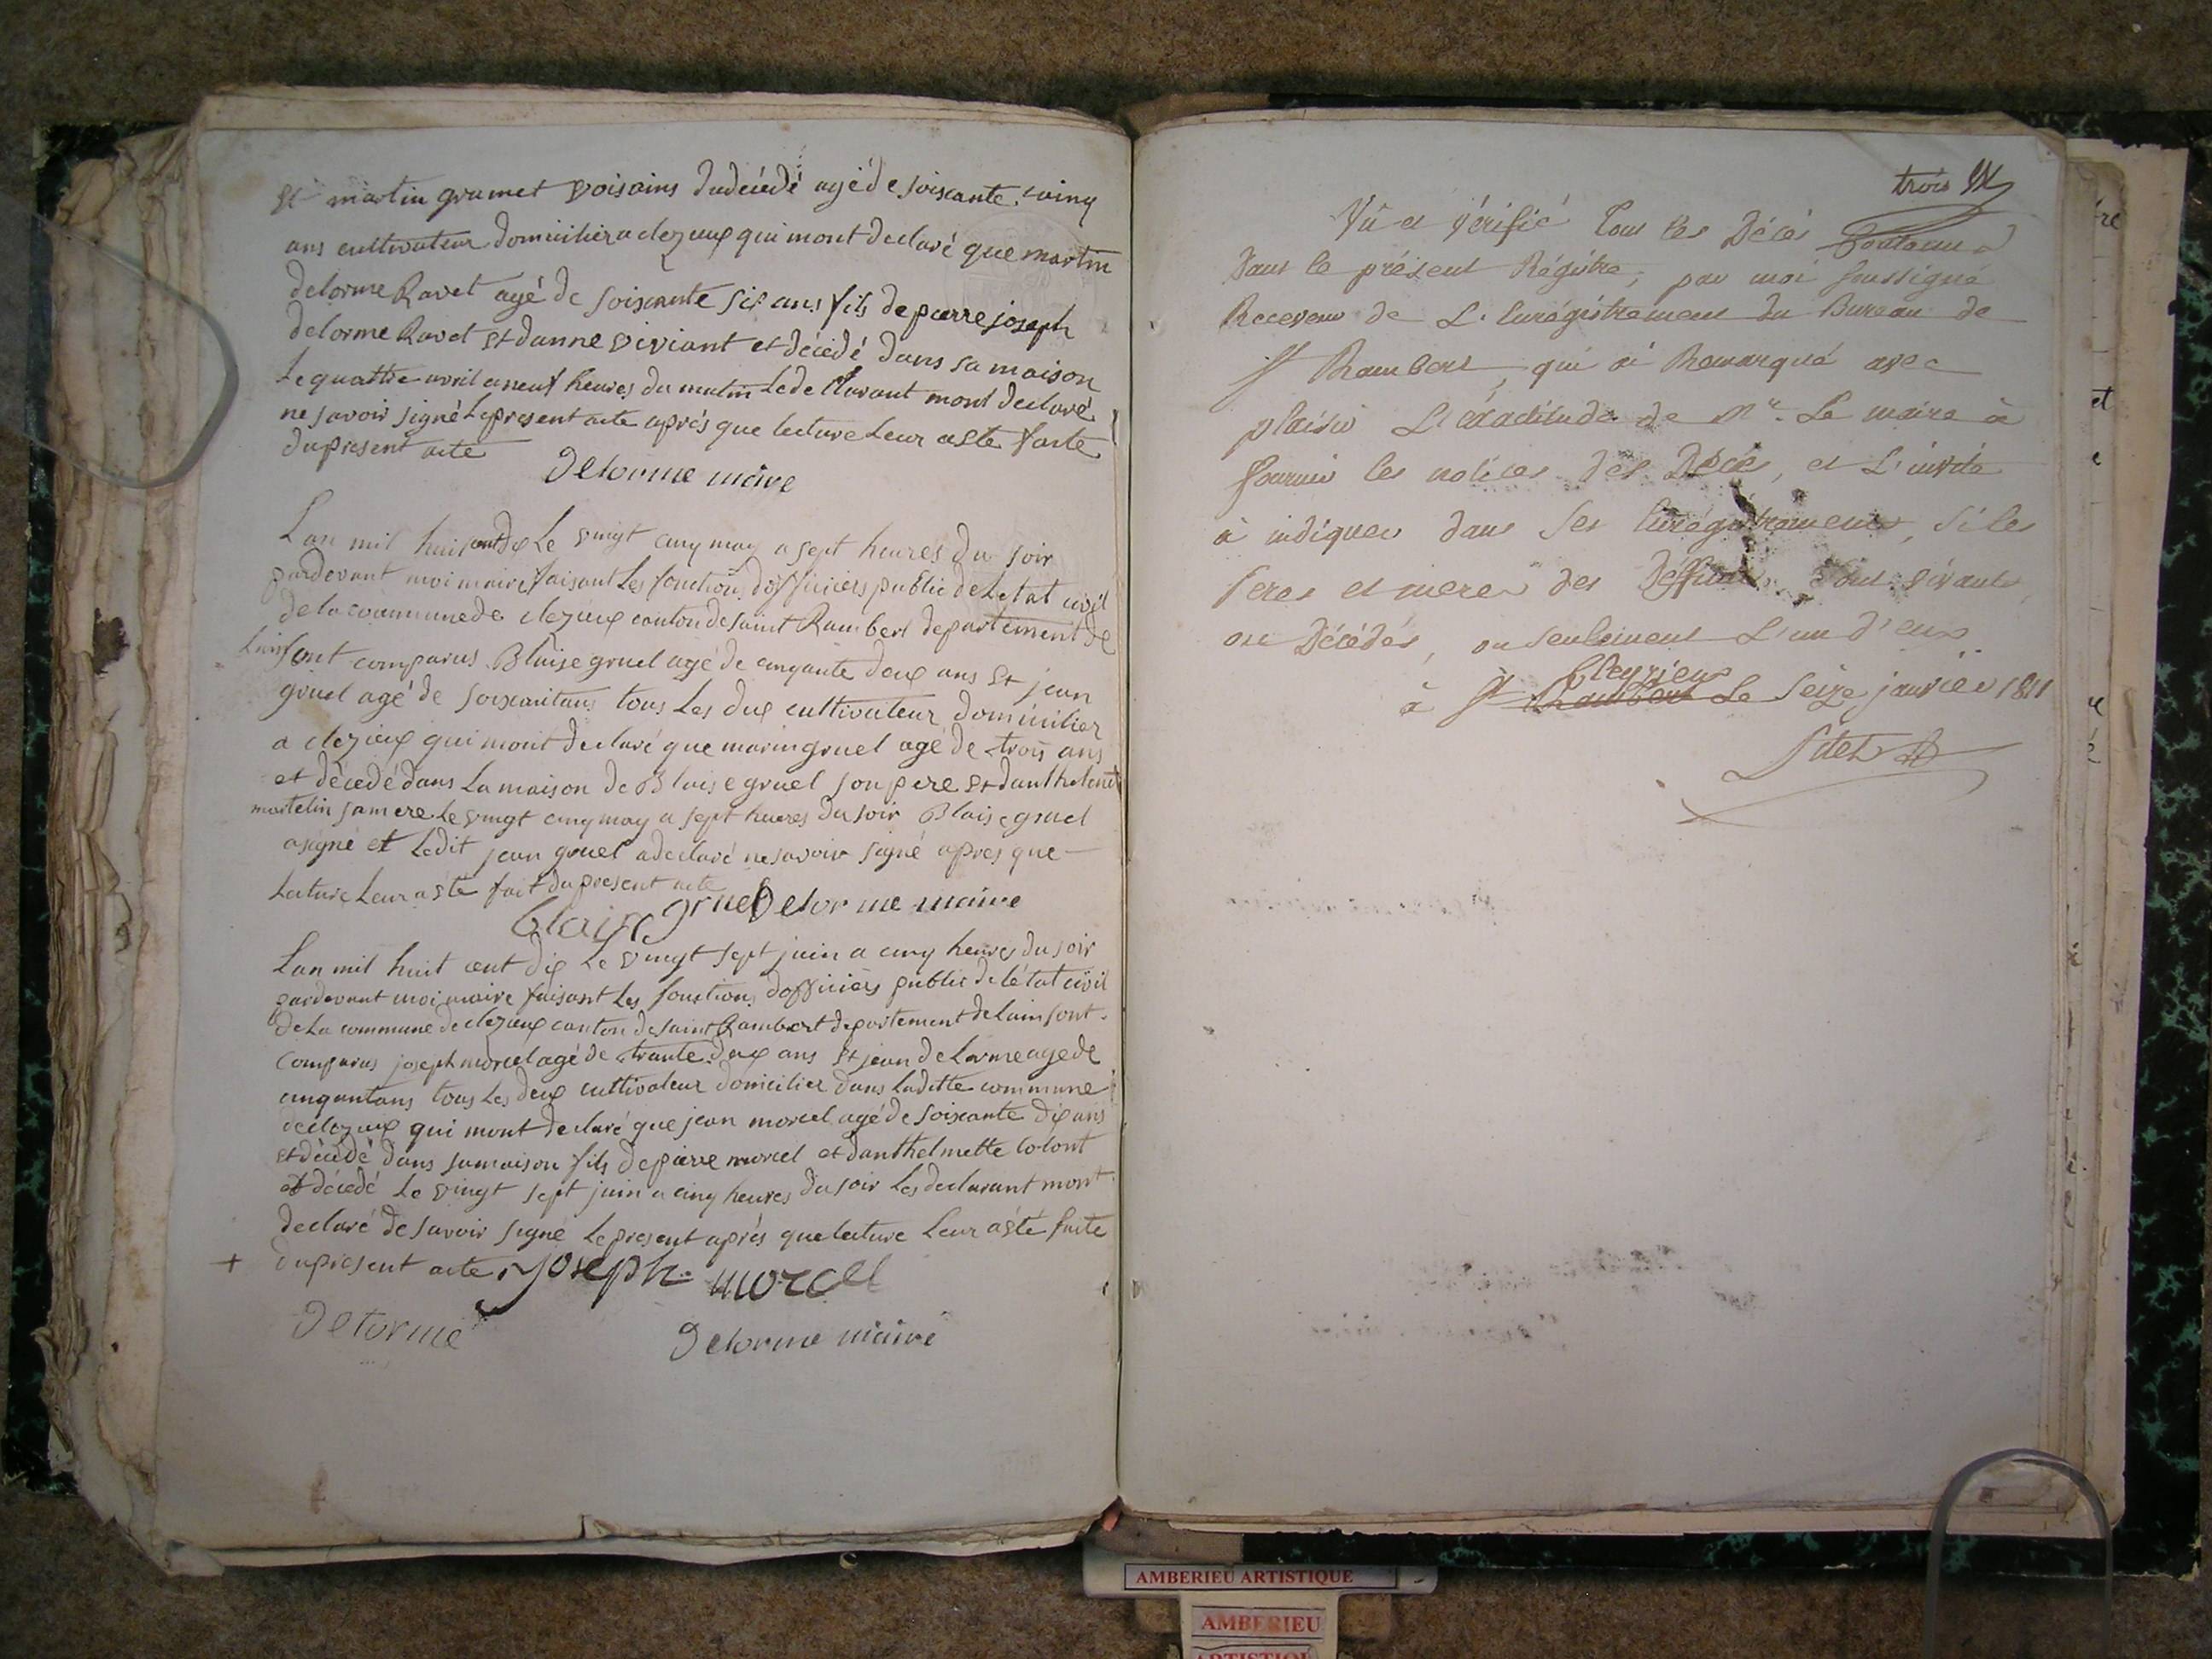 St martin grumet voisains dudecédé agé de soixante cainq
ans cultivateur domicilier a clezieux qui mont declaré que martin
delorme Ravet agé de soixante six ans fils de pierre joseph
delorme Ravet et danne viviant et décedé dans sa maison
Le quattre avril a neuf heures du matin Le declarant mont declaré
ne savoir signé Le present acte aprés que lecture Leur a eté faite
dupresent acte
Delorme maire
Lan mil huit cent dix Le vingt cinq may a sept heures du soir
pardevant moi maire faisant Les fonctions dofficiers public de Letat civil
de la commune de clezieux canton de saint Rambert departement de
Lain sont comparus Blaise gruel agé de cinquante deux ans et jean
gruel agé de soixantans tous Les dux cultivateur domicilier
a clezieux qui mont declaré que marin gruel agé de trois ans
et décedé dans La maison de Blaise gruel son pere et danthelmet
martelin sa mere Le vingt cinq may a sept heures du soir Blaise gruel
a signé et Ledit jean gruel a declaré ne savoir signé apres que
Lecture Leur a eté fait du present acte
blaise gruel Delorme maire
Lan mil huit cent dix Le vingt sept juin a cinq heures du soir
pardevant moi maire faisant Les fonctions dofficiers public de létat civil
de La commune de clezieux canton de saint Rambert departement de Lain sont
comparus joseph morcel agé de trante deux ans et jean deLorme age de
cinquantans tous Les deux cultivateur domicilier dans Laditte commune
de clezieux qui mont declaré que jean morcel agé de soixante dix ans
et décédé dans samaison fils de pierre morcel et danthelmette Colont
et décedé Le vingt sept juin a cinq heures du soir Les declarant mont
declaré de savoir signé Le present aprés que lecture Leur a été faite
+ du present acte Joseph morcel
Delorme Delorme maire
trois
Vû et vérifié tous les Décès Contenus
Dans le présent Régitre, par moi soussigné
Receveur de L'Enrégistrement du Bureau de
St Rambert, qui ai Remarqué avec
plaisir L'éxactitude de Mr. Le maire à
fournir les notices des Décès, et L'invite
à indiquer dans ses Enrégistrements, si les
peres et meres des Déffunts sont vivants,
ou Décédés, ou seulement L'un d'eux
Cleyzieux
à St Rambert Le Seize janvier 1811
AMBERIEU ARTISTIQUE
AMBERIEU
ARTISTIQUE